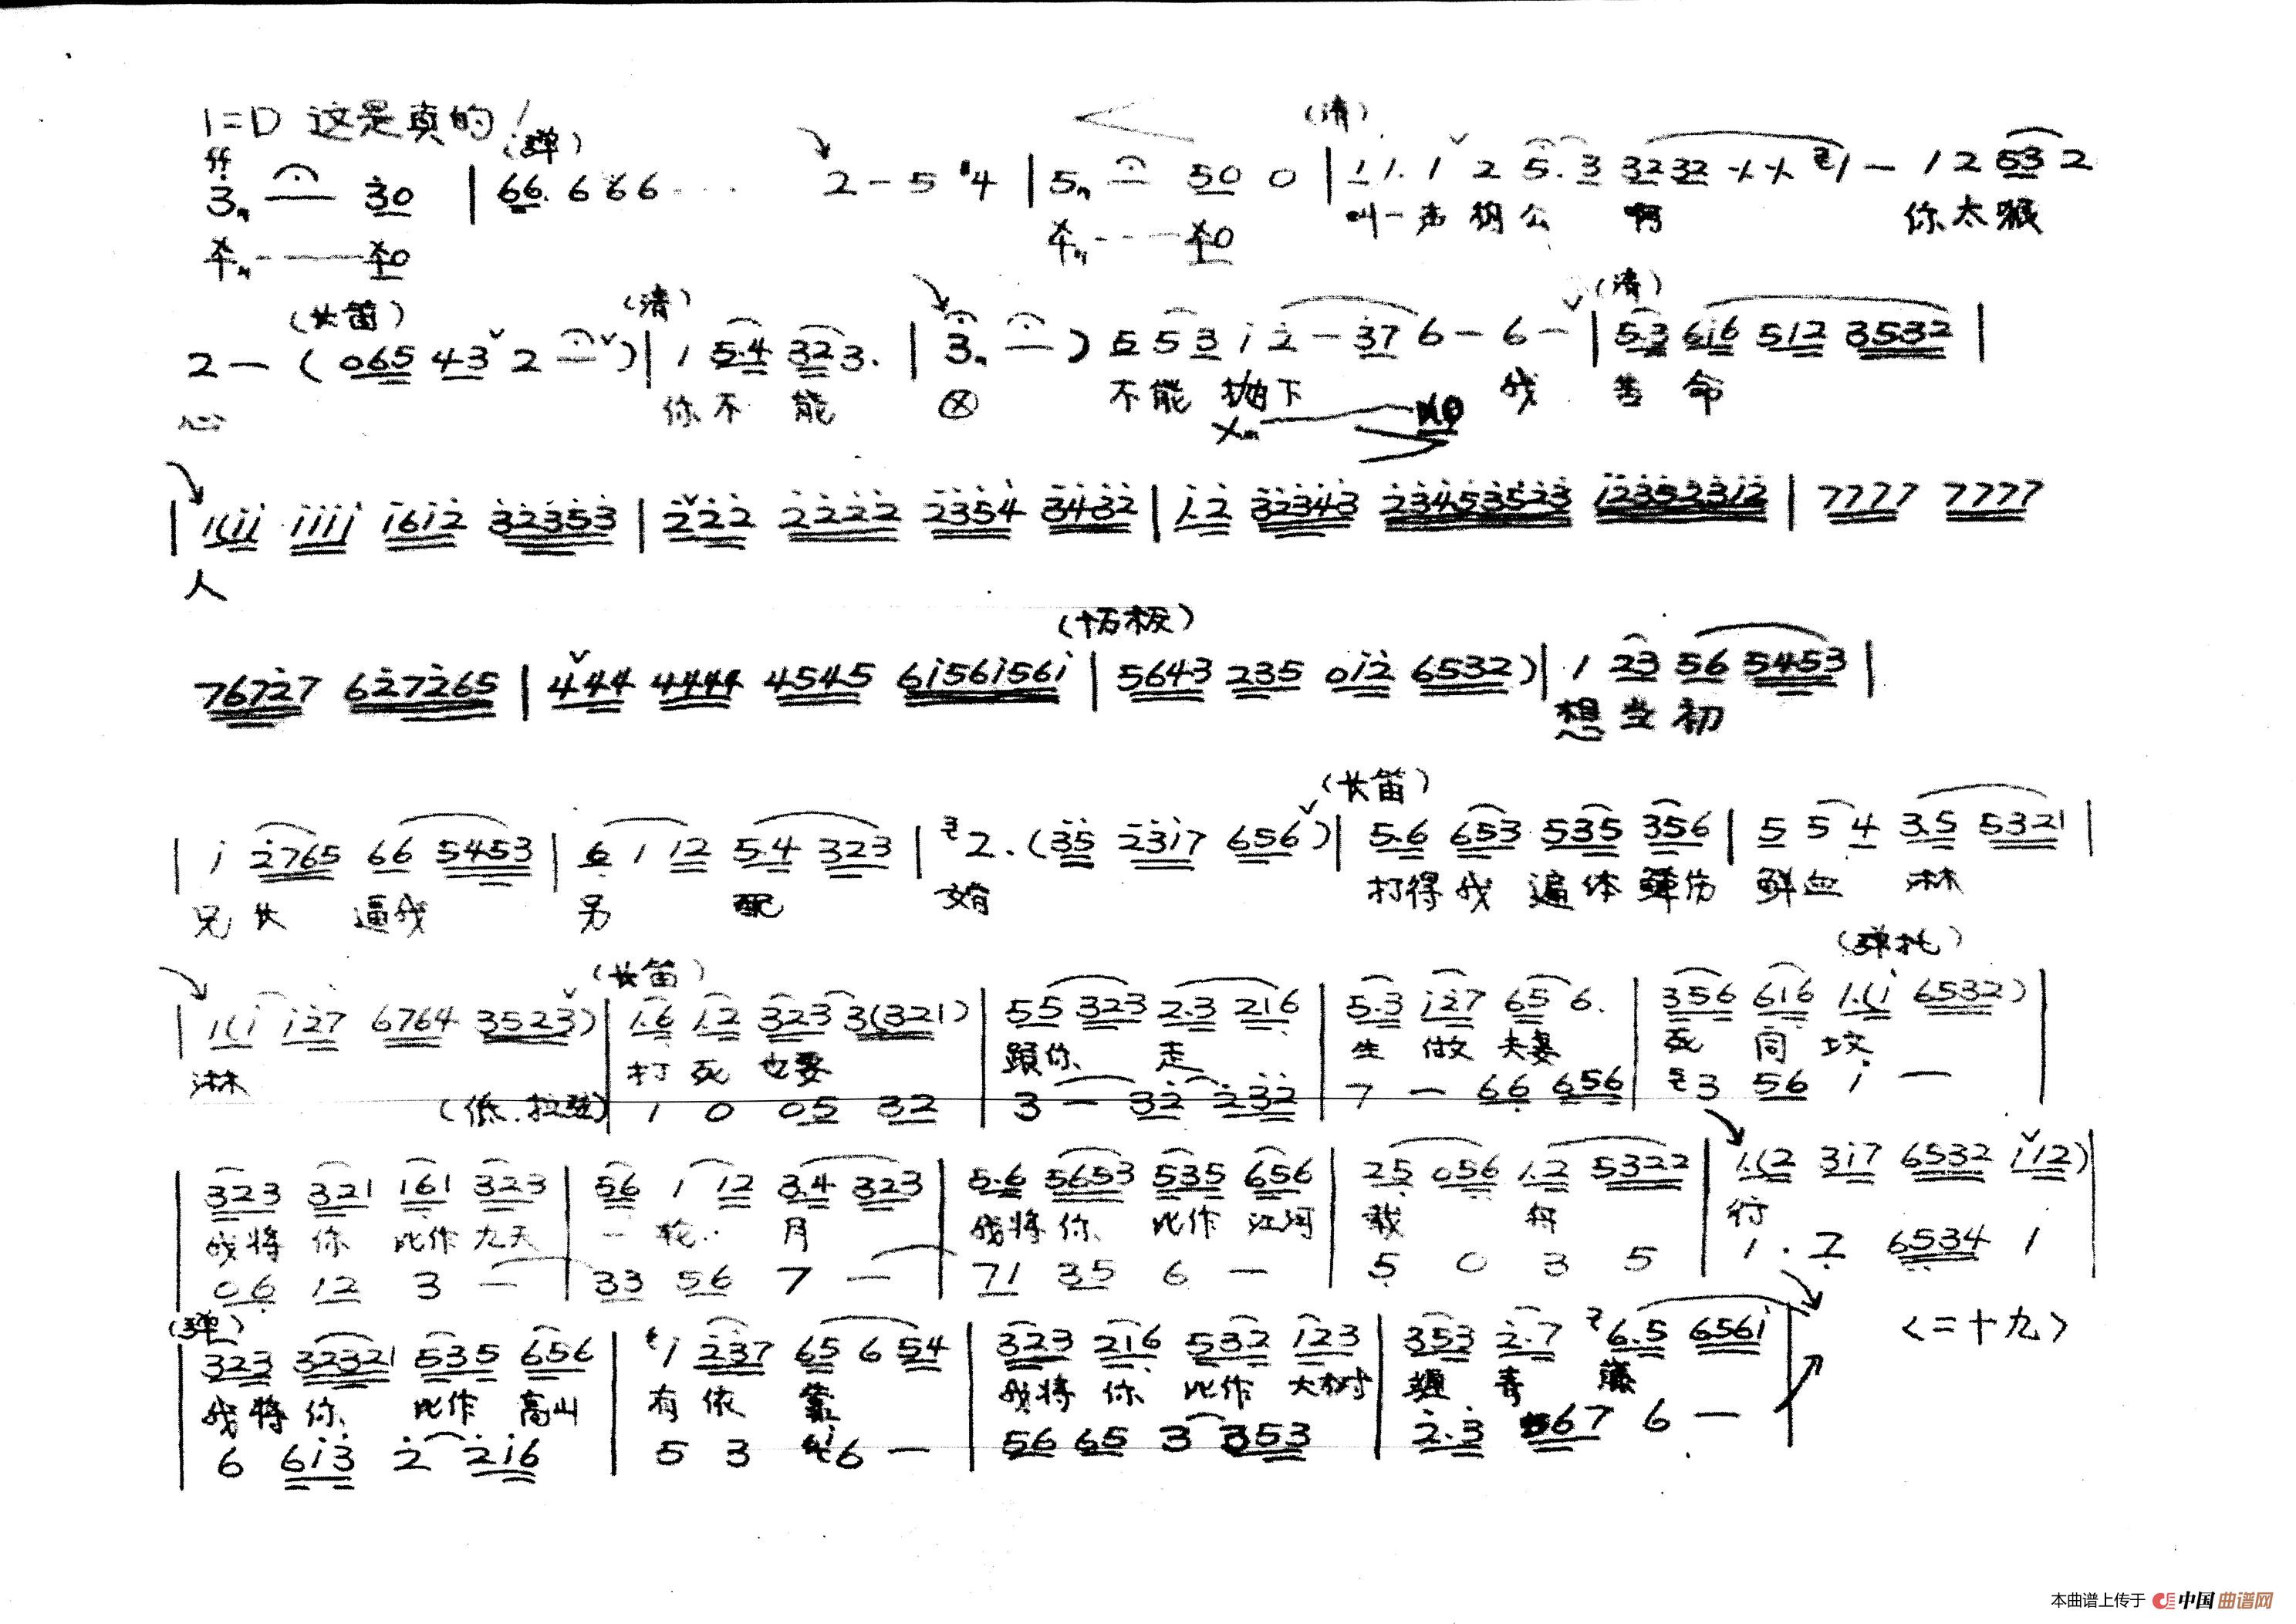 1=D 这是真的！
(弹) (清)
ff
3 — 30 | 66. 6 6 6 ... 2 — 5 #4 | 5 — 50 0 | 1 1. 1 2 5. 3 3232 21 — 1 2 53 2
叫一声相公 啊 你太狠
(长笛) (清) (清)
2 — ( 065 43 2 — ) | 1 5.4 32 3. | 3 — ) 5 5 3 i 2 — 37 6 — 6 — | 5.3 6i6 512 3532 |
心 你不 能 不能 抛下 我 苦 命
| 1(ii iiii i6i2 32353 | 222 2222 2354 3432 | 1.2 32343 23453523 12352312 | 7777 7777
人
(拓板)
76727 627265 | 444 4444 4545 6i56i56i | 5643 235 0i2 6532) | 1 23 56 5453 |
想当初
(长笛)
| i 2765 66 5453 | 6 1 12 5.4 323 | 2. (35 23i7 656) | 5.6 653 535 356 | 5 5 4 3.5 5321 |
兄长 逼我 另 配 婚 打得我 遍体鲜伤 鲜血 淋
(长笛) (弹托)
| 1(i i27 6764 3523) | 1.6 1.2 323 3(321) | 55 323 2.3 216 | 5.3 i27 65 6. | 356 616 1.(i 6532) |
淋 打死也要 跟你 走 生做夫妻 死 同 坟
(低.拉弦) 1 0 05 32 3 — 32 232 7 — 66 656 3 56 i —
| 323 321 161 323 | 56 1 12 3.4 323 | 5.6 5653 535 656 | 25 056 1.2 5322 | 1.(2 3i7 6532 i12) |
我将 你 比作 九天 一 轮 月 我将你 比作 江河 载 舟 行
06 12 3 — 33 56 7 — 71 35 6 — 5 0 3 5 1 . 2 6534 1
(弹) <二十九>
| 323 32321 535 656 | i 237 65 6 54 | 323 216 532 123 | 353 2.7 6.5 656i |
我将你 比作 高山 有依 靠 我将 你 比作 大树 缠 青 藤
6 6i3 2 2i6 | 5 3 6 — | 56 65 3 353 | 2.3 67 6 — |
本曲谱上传于 中国曲谱网